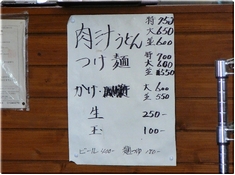 肉汁うどん 特 750
大 650
並 600
つけ麺 特 700
大 600
並 550
かけ・ 大 600
並 550
生 250-
玉 100-
ビール